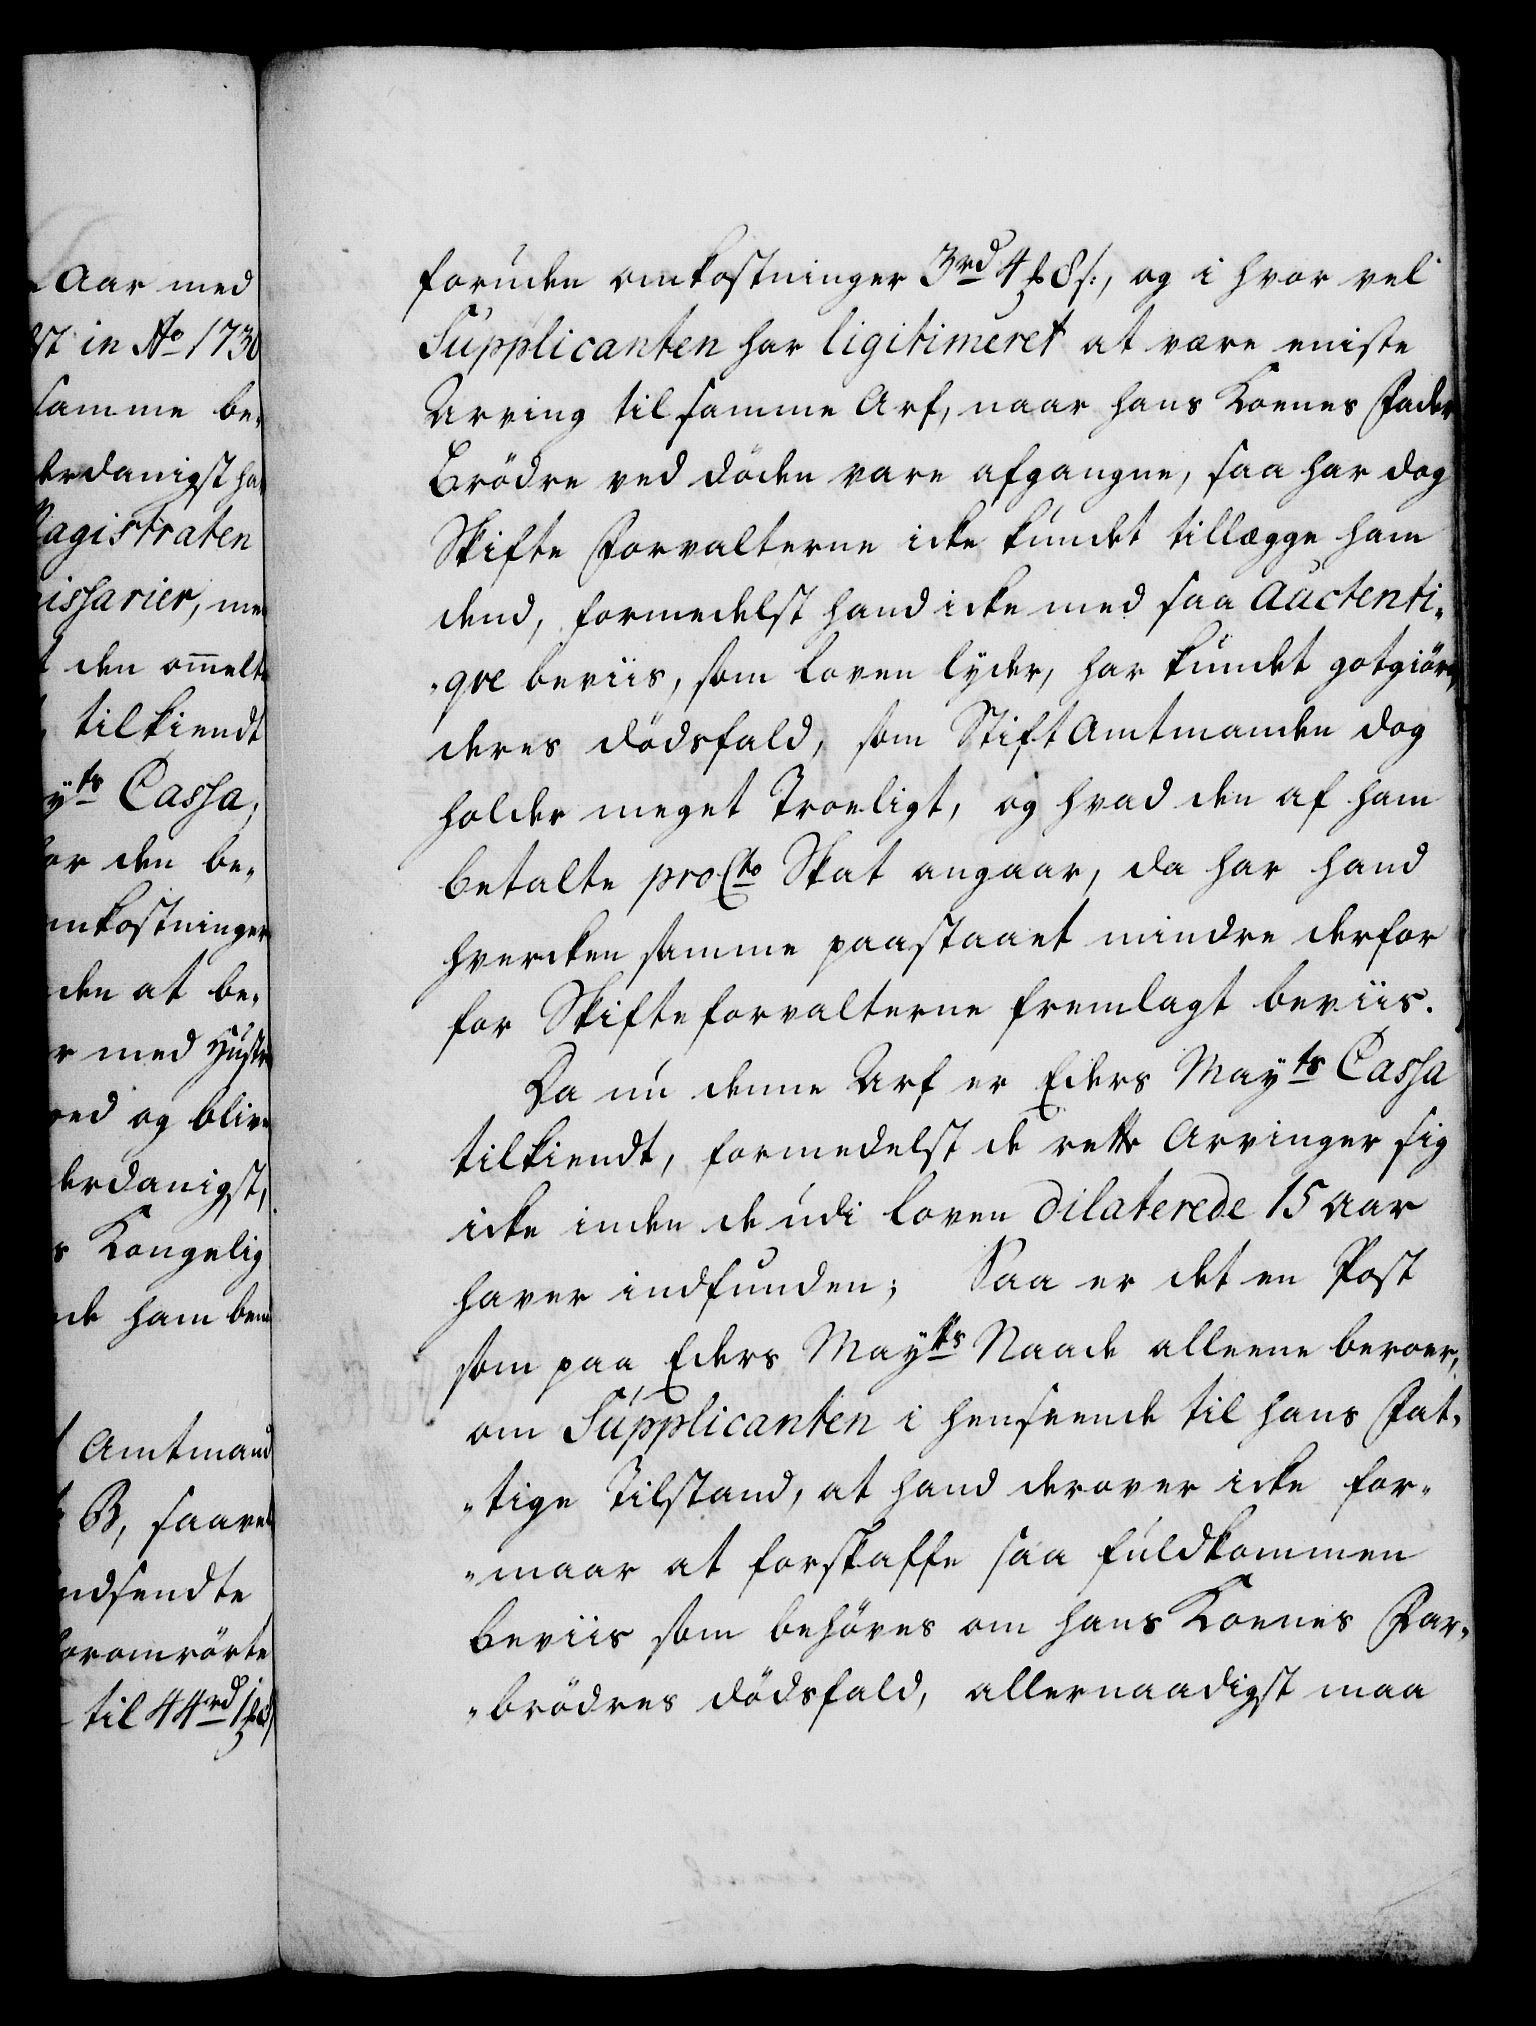 Aar med
in Ao 1730
samme be„
derdanigst ha
Magistraten
issarier, me
den om̅elte
tilkiendt
yts Cassa,
or den be„
mkostninger
den at be„
r med Hustr
ed og blive
derdanigst,
s Kongelig
de ham ben
Amtmand
B, saavel
ndsendte
foromrörte
til 44 rd 1 ℔ 8
foruden omkostninger 3rd 4 ℔ 8 s:, og i hvor vel
Supplicanten har ligitimeret at være eniste
Arving til samme Arf, naar hans Koenes Fader
Brödre ved döden vare afgangne, saa har dog
Skifte Forvalterne icke kundet tillægge ham
dend, formedelst hand icke med saa Auctenti„
„qve beviis, som loven lyder, har kundet gotgiöre,
deres dödsfald, som StiftAmtmanden dog
holder meget Troeligt, og hvad den af ham
betalte pro Cto Skat angaar, da har hand
hvercken samme paastaaet mindre derfor
for Skifteforvalterne fremlagt beviis.
Da nu denne Arf er Eders Mayts Cassa
tilkiendt, formedelst de rette Arvinger sig
icke inden de udi loven dilaterede 15 Aar
haver indfunden; Saa er det en Post
som paa Eders Mayts Naade alleene beroer,
om Supplicanten i henseende til hans Fat„
„tige Tilstand, at hand derover icke for„
„maar at forskaffe saa fuldkommen
beviis som behöves om hans Koenes Far„
„brödres dödsfald, allernaadigst maa